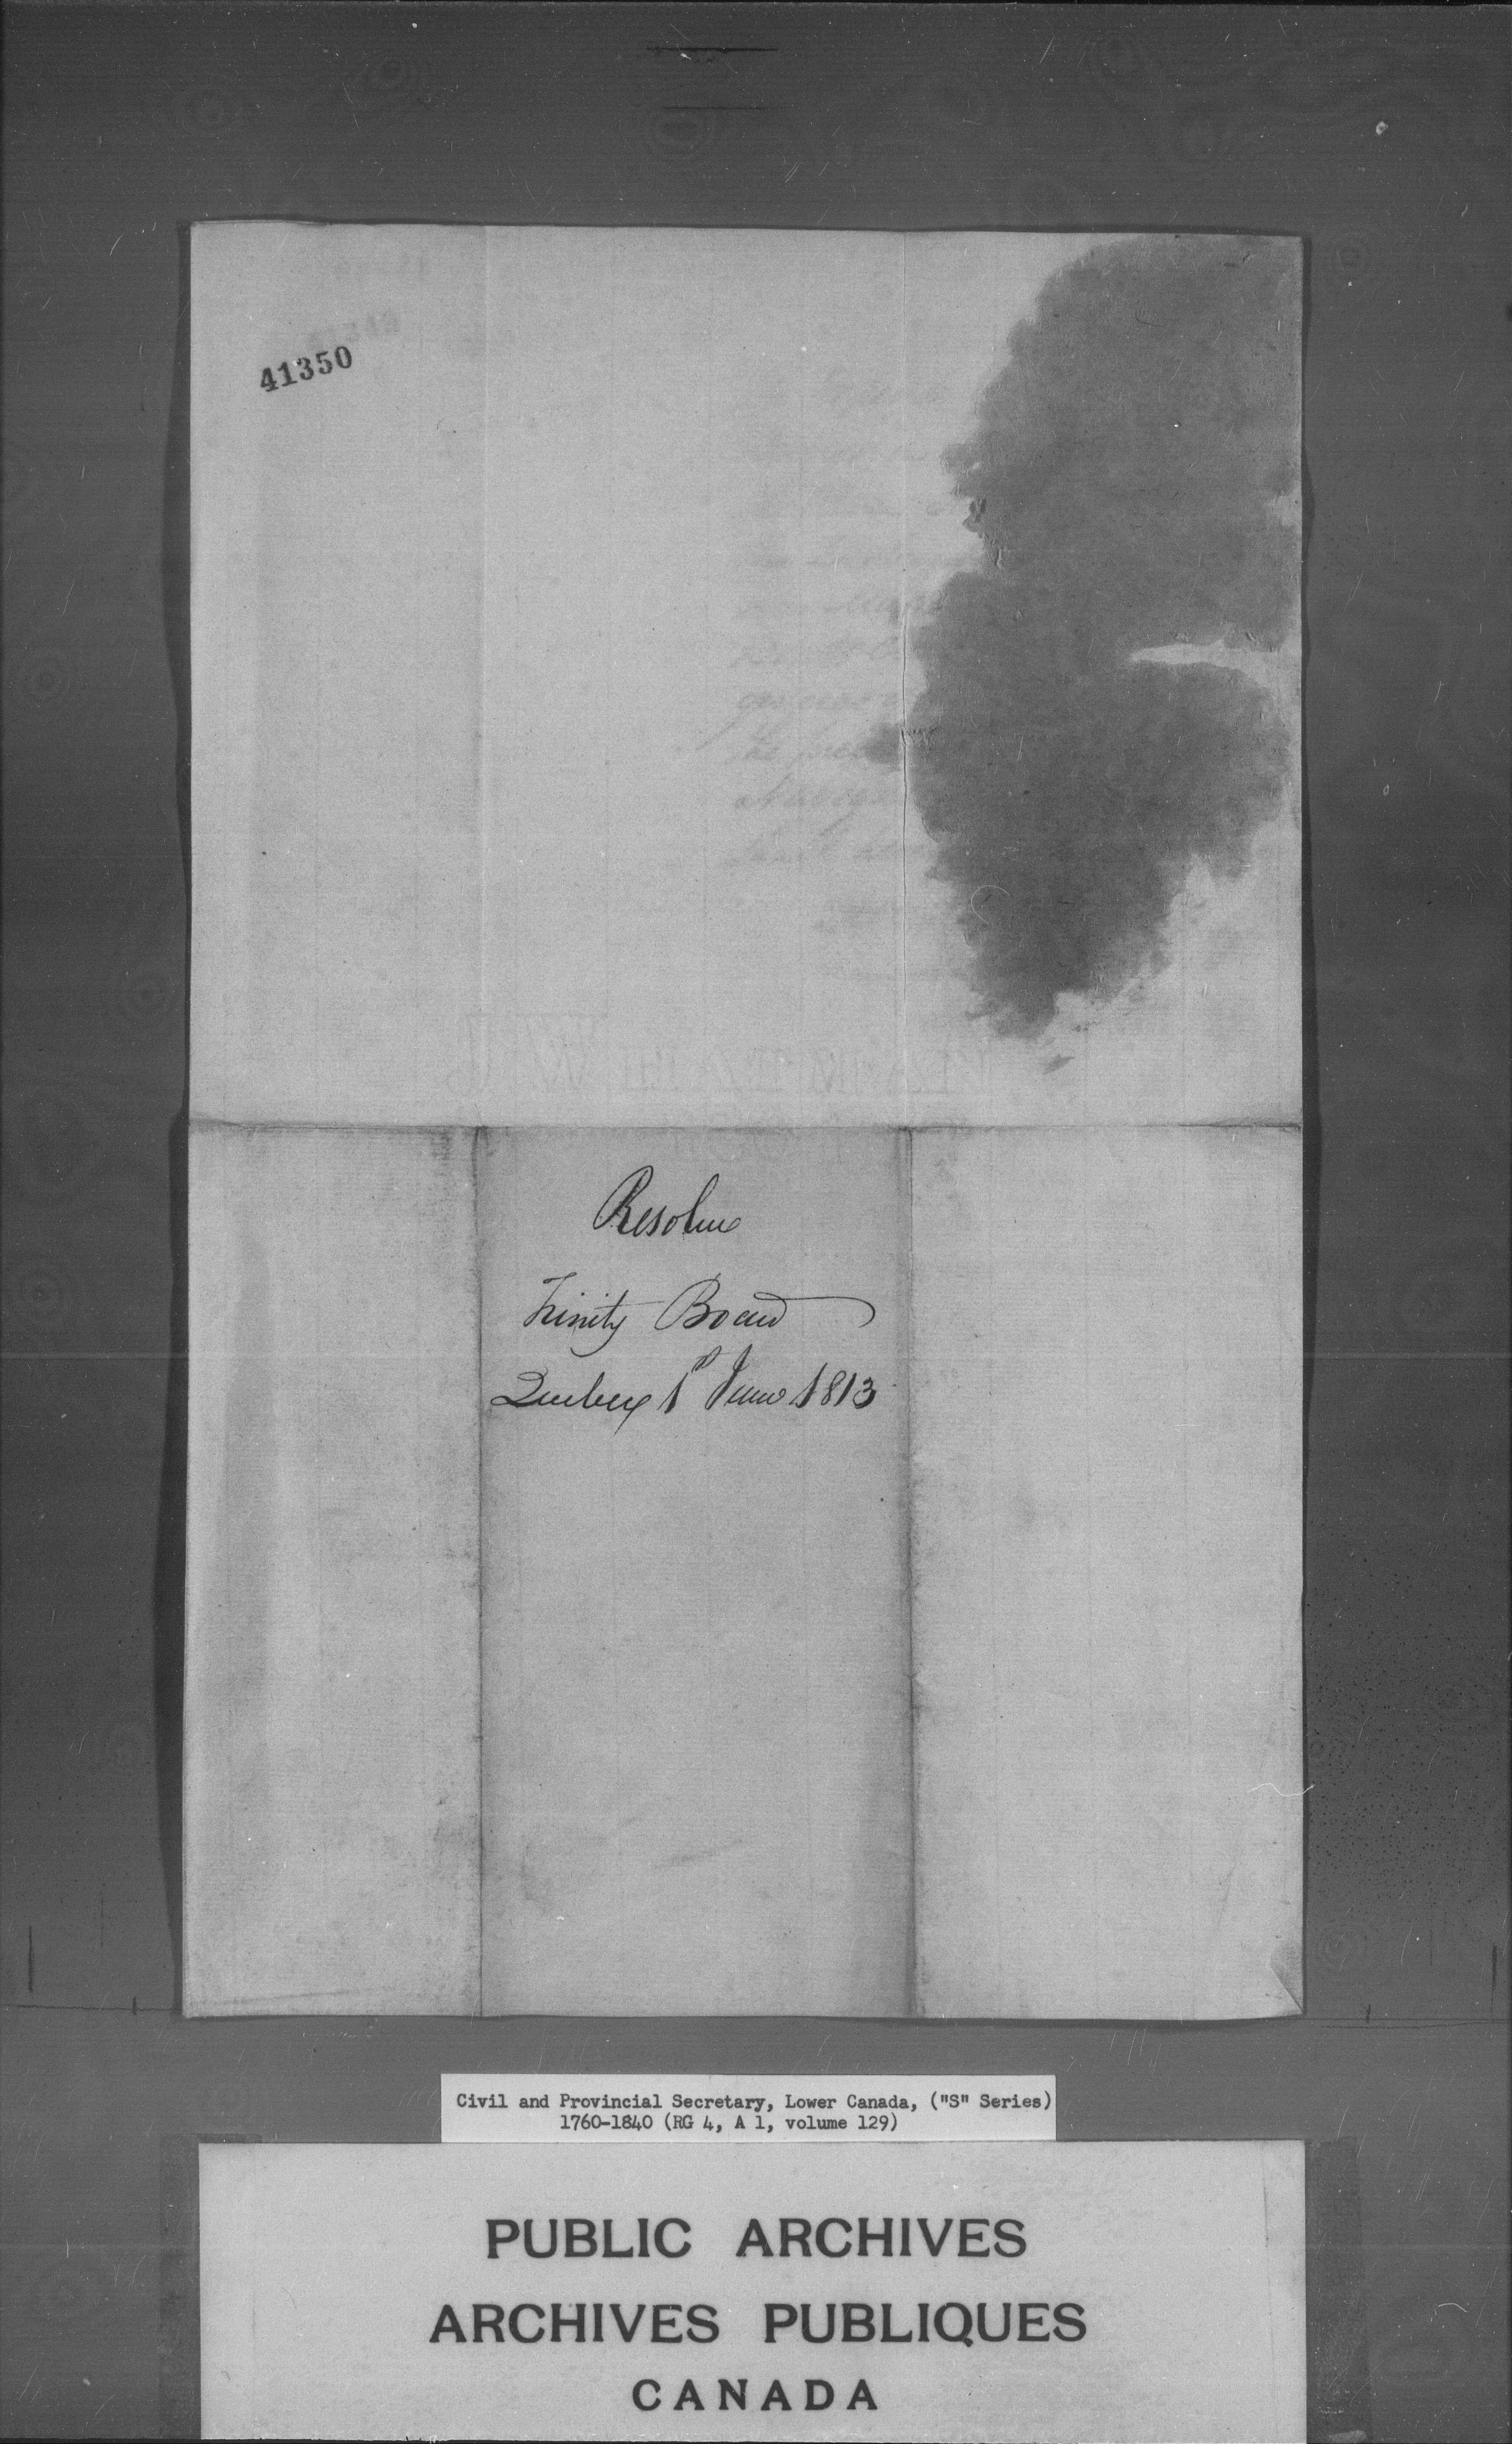 41350
Resolve
Trinity Board
Quebec 1st June 1813
Civil and Provincial Secretary, Lower Canada, ("S" Series)
1760-1840 (RG 4, A 1, volume 129)
PUBLIC ARCHIVES
ARCHIVES PUBLIQUES
CANADA